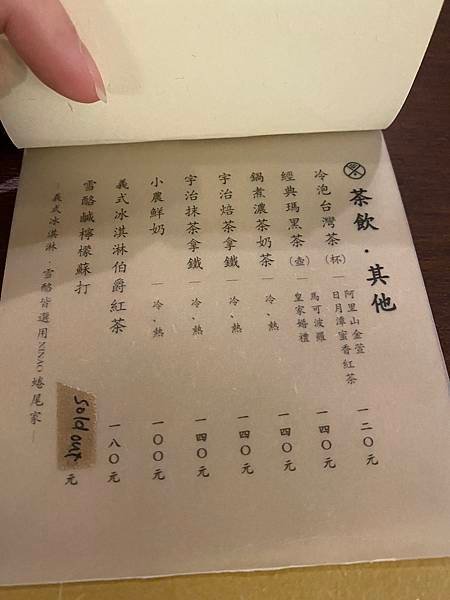 茶飲．其他
冷泡台灣茶（杯）｜阿里山金萱 日月潭蜜香紅茶 一二〇元
經典瑪黑茶（壺）｜馬可波羅 皇家婚禮 一四〇元
鍋煮濃茶奶茶｜冷、熱 一四〇元
宇治焙茶拿鐵｜冷、熱 一四〇元
宇治抹茶拿鐵｜冷、熱 一四〇元
小農鮮奶｜冷、熱 一〇〇元
義式冰淇淋伯爵紅茶 一八〇元
雪酪鹹檸檬蘇打 Sold out 元
｜義式冰淇淋．雪酪皆選用NINAO 蜷尾家｜